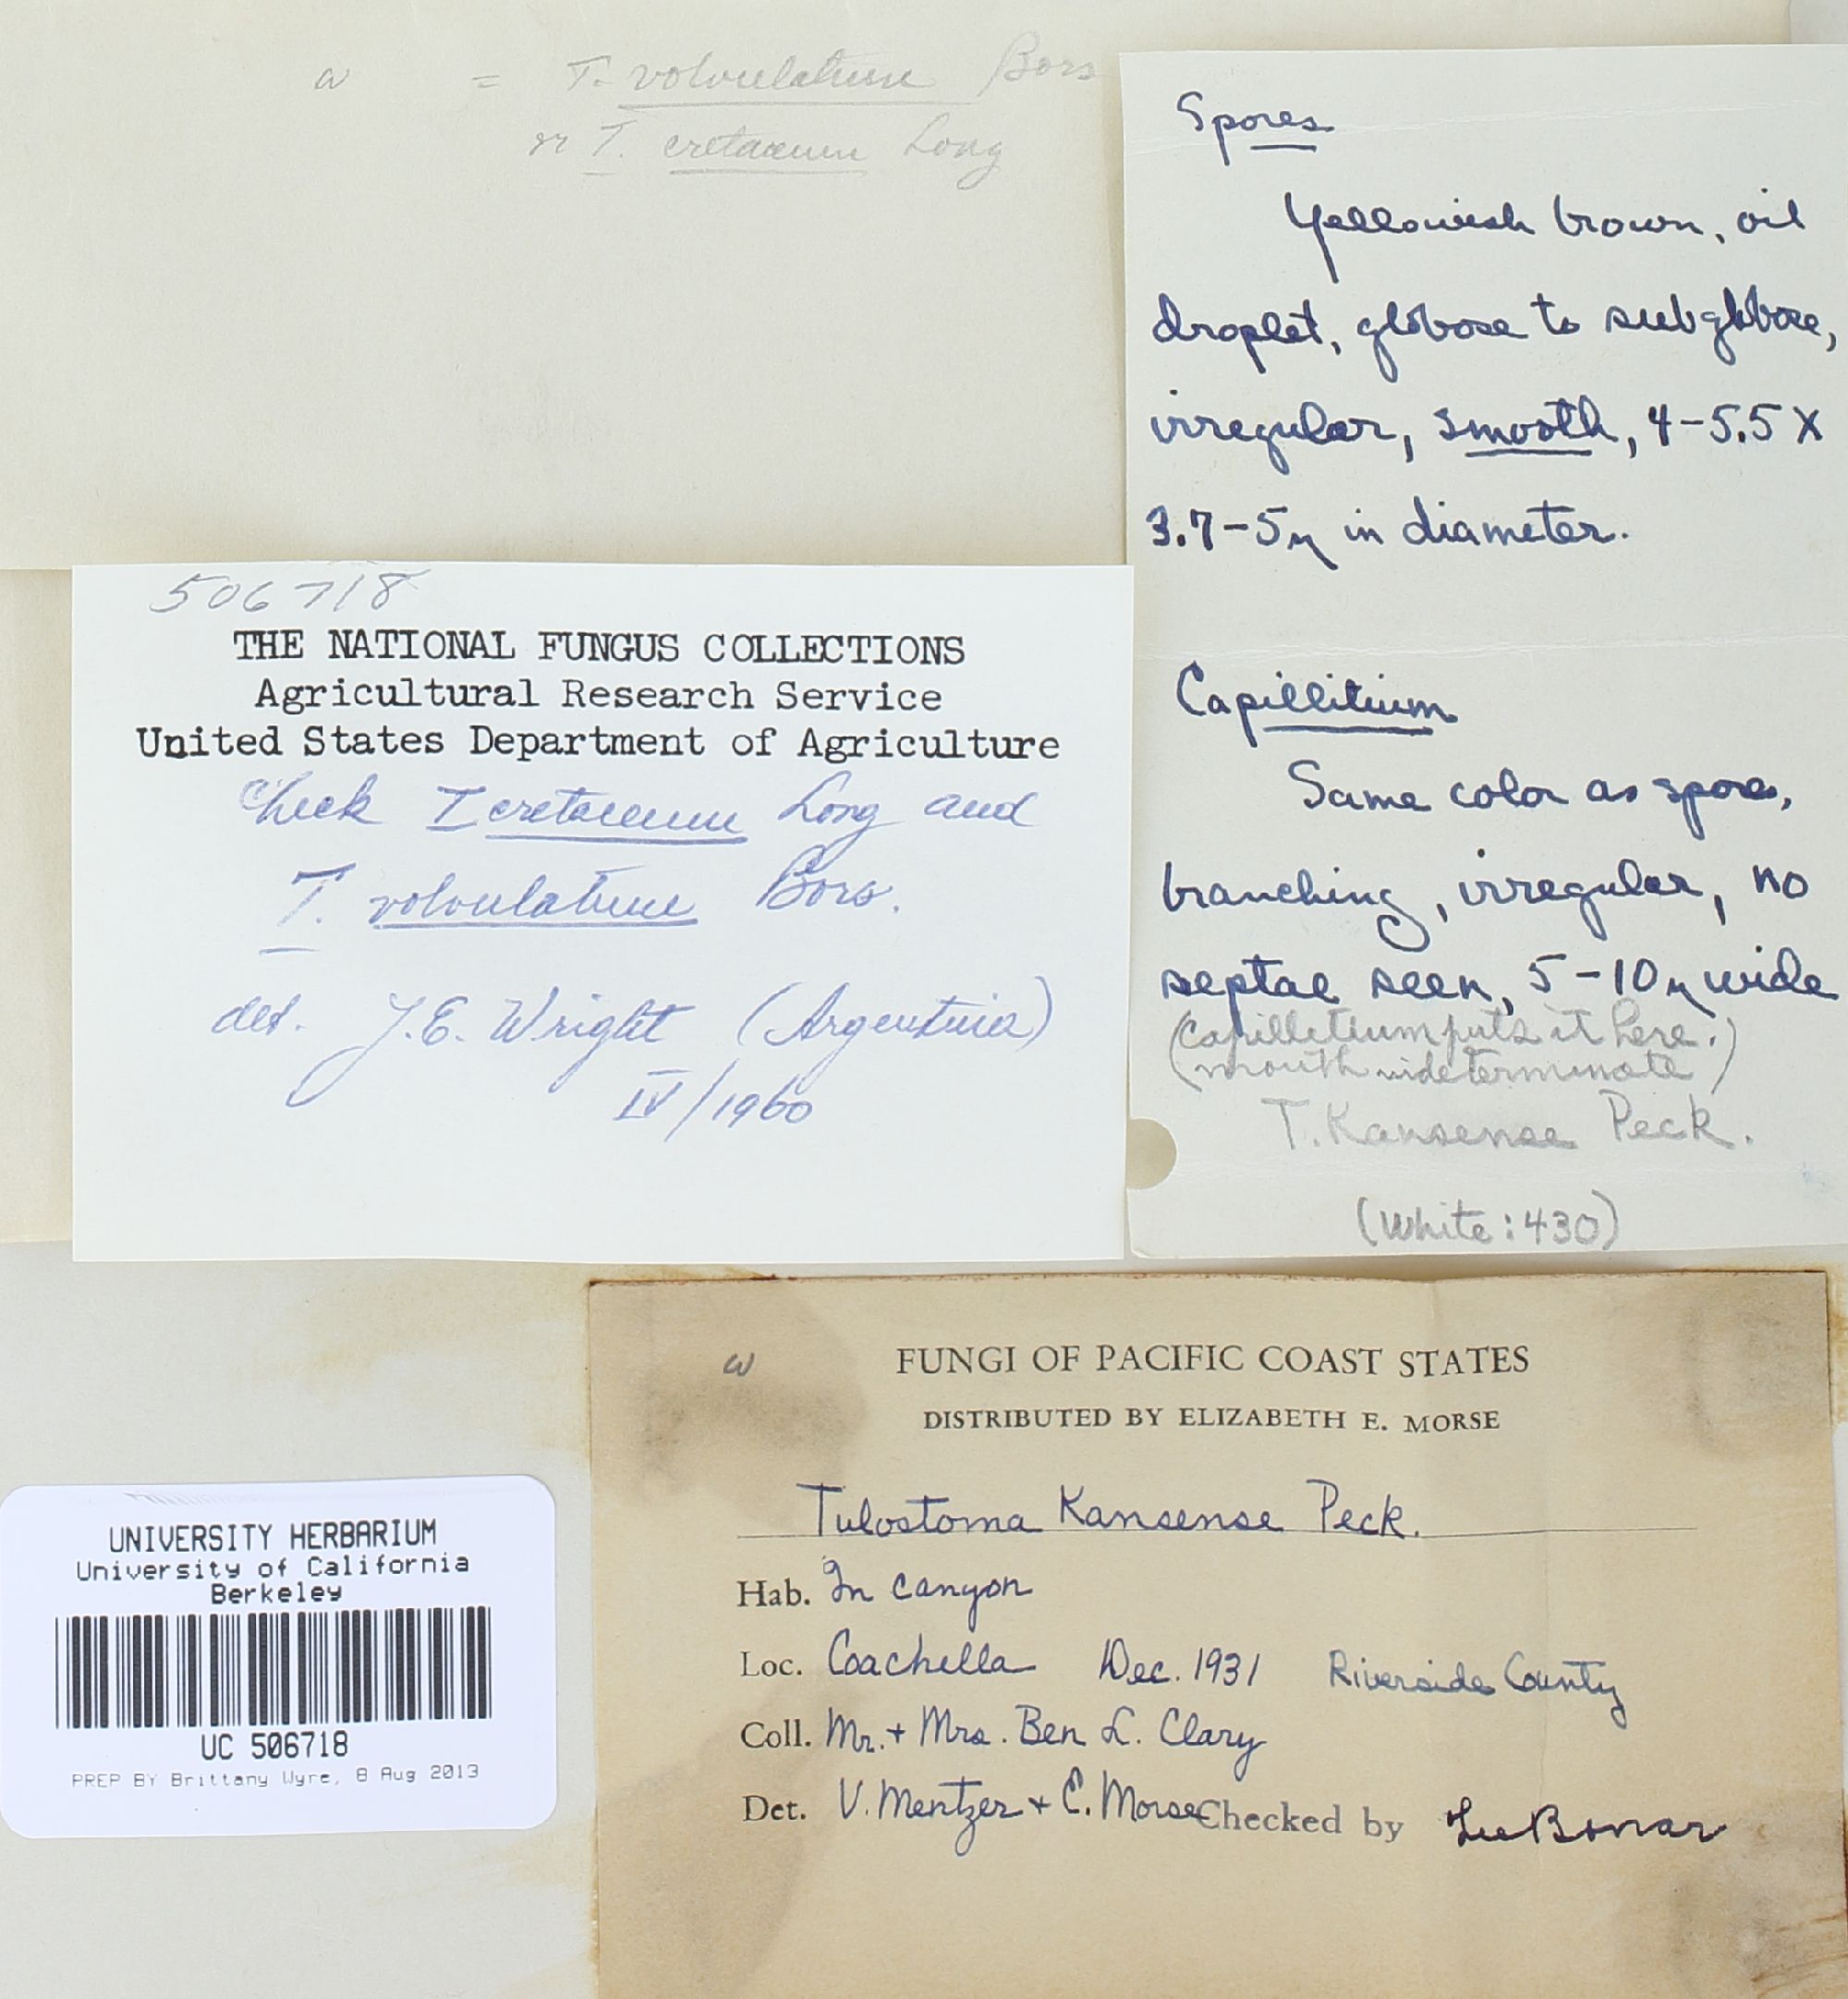 w = T. volvulatum Bors
or T. cretaceum Long
Spores
Yellowish brown, oil
droplet, globose to subglobose,
irregular, smooth, 4-5.5 X
3.7-5μ in diameter.
Capillitium
Same color as spores,
branching, irregular, no
septae seen, 5-10μ wide
(Capillitium puts it here.)
(mouth indeterminate)
T. Kansense Peck.
(White: 430)
506718
THE NATIONAL FUNGUS COLLECTIONS
Agricultural Research Service
United States Department of Agriculture
Check T cretaceum Long and
T. volvulatum Bors.
det. J.E. Wright (Argentina)
IV/1960
w
FUNGI OF PACIFIC COAST STATES
DISTRIBUTED BY ELIZABETH E. MORSE
Tulostoma Kansense Peck.
Hab. In canyon
Loc. Coachella Dec. 1931 Riverside County
Coll. Mr. + Mrs. Ben L. Clary
Det. V. Mentzer + E. Morse Checked by Lee Bonar
UNIVERSITY HERBARIUM
University of California
Berkeley
UC 506718
PREP BY Brittany Wyre, 8 Aug 2013